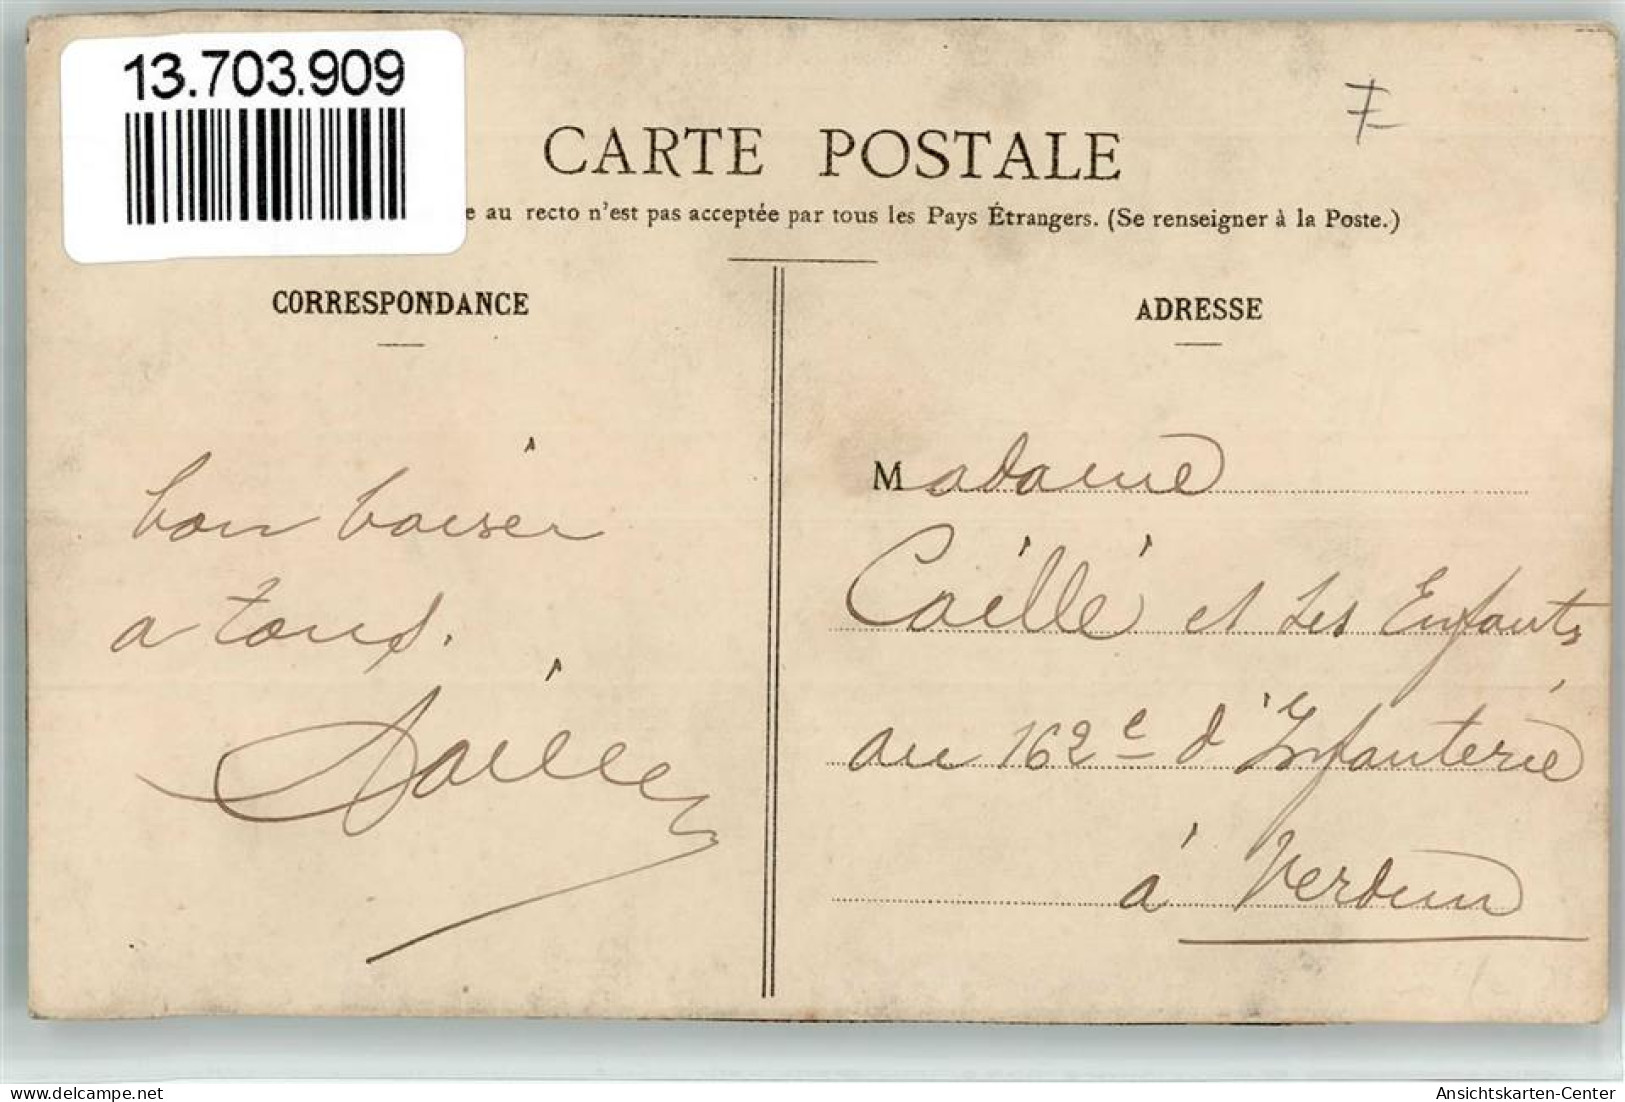 13.703.909
F
CARTE POSTALE
e au recto n'est pas acceptée par tous les Pays Étrangers. (Se renseigner à la Poste.)
CORRESPONDANCE
bon baiser
a tous.
ADRESSE
Madame
Caillé et Les Enfants
au 162e d'Infanterie
à Verdun
delcampe.net
Ansichtskarten-Center